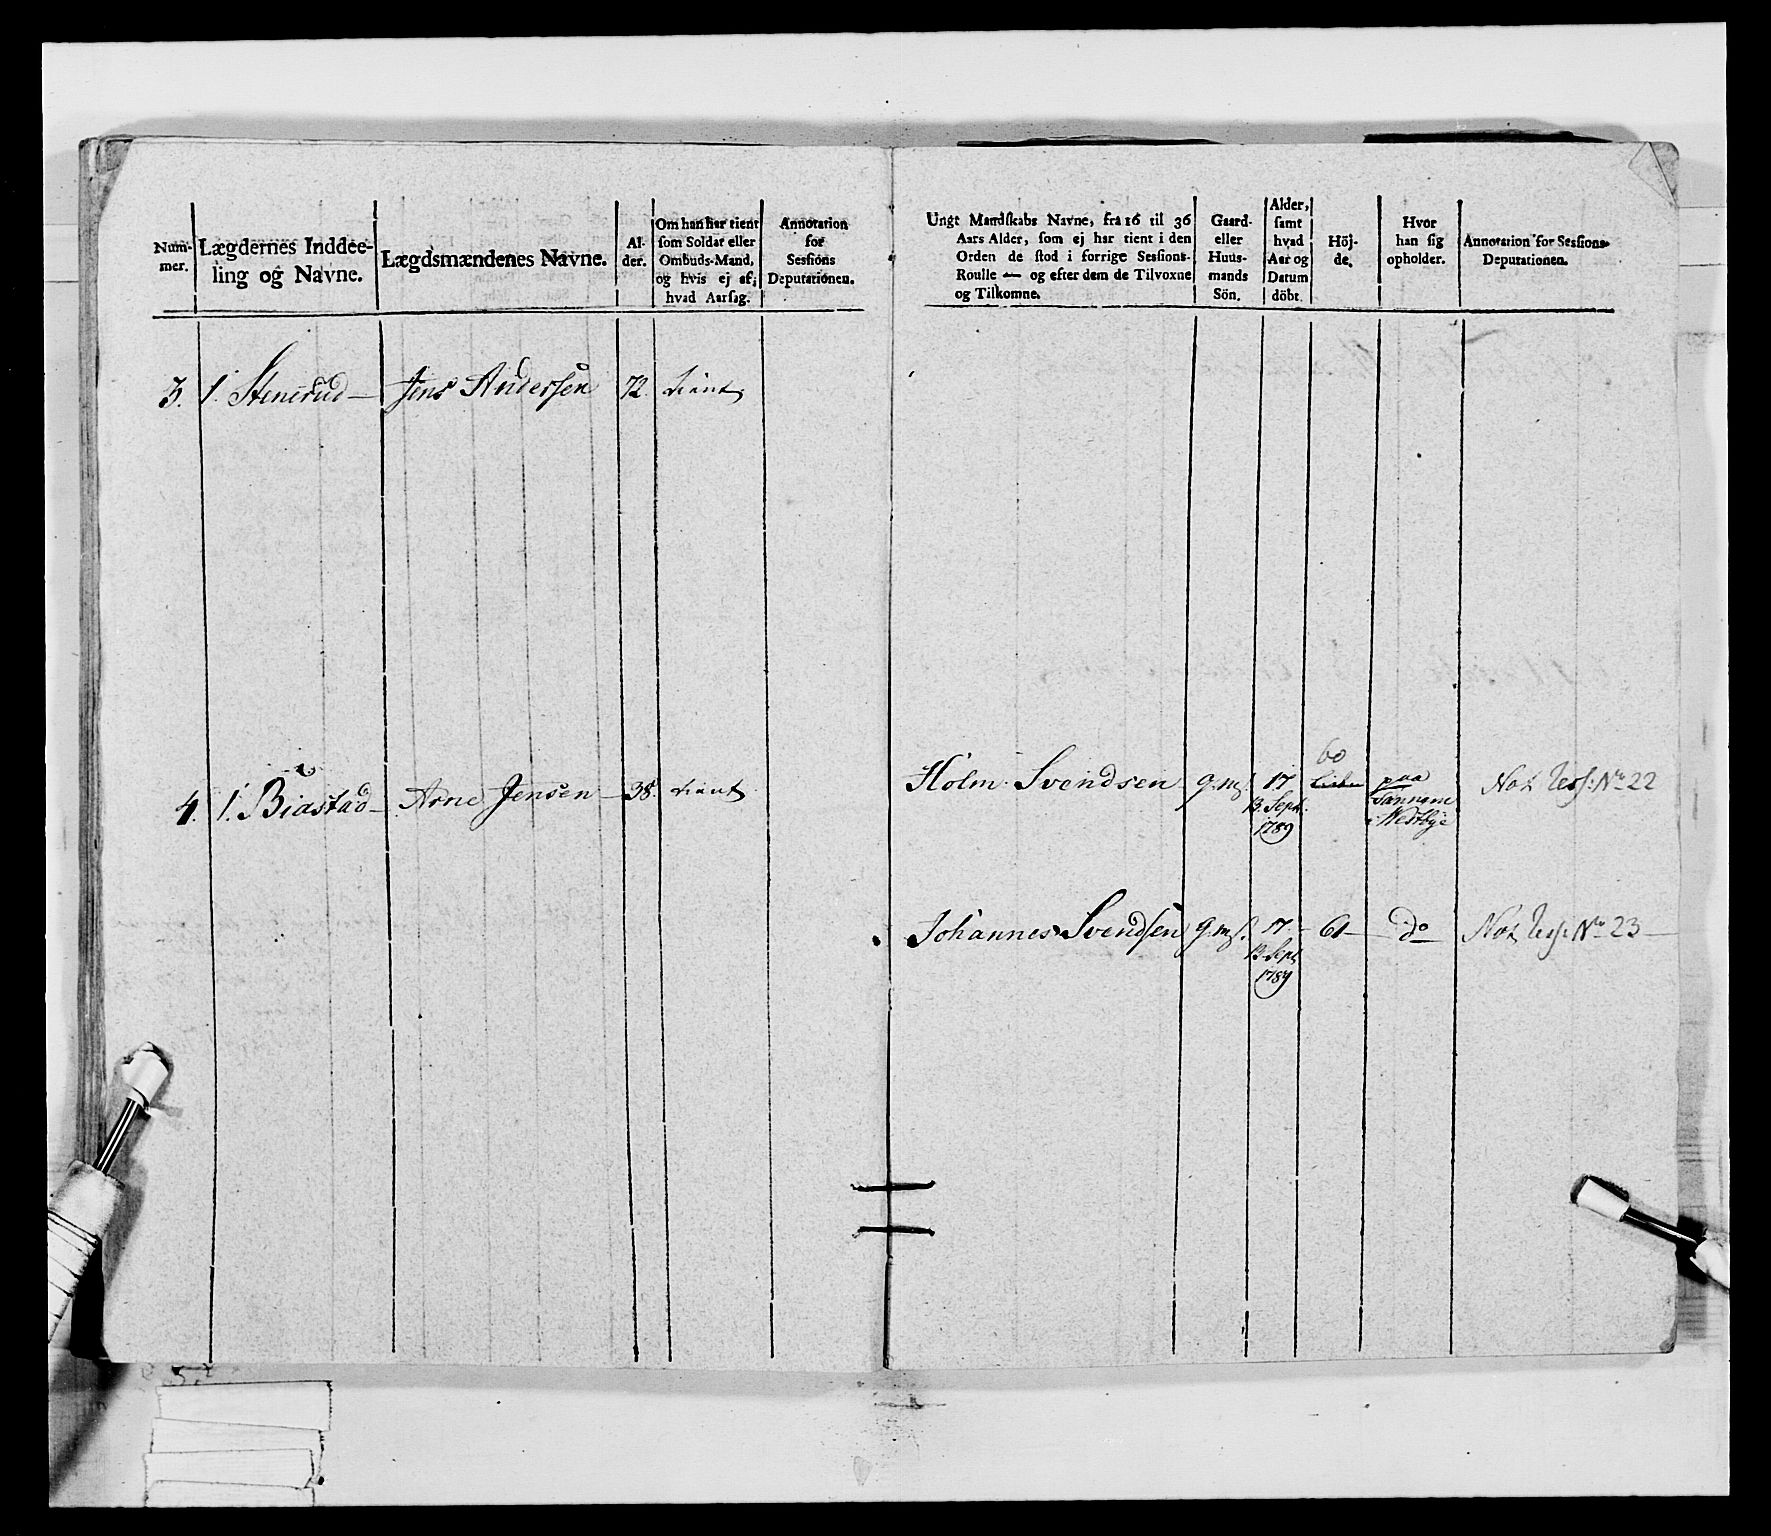 Num-
mer.
Lægdernes Inddee-
ling og Navne.
Lægdsmændenes Navne.
Al-
der.
Om han har tient
som Soldat eller
Ombuds-Mand,
og hvis ej af,
hvad Aarsag.
Annotation
for
Sessions
Deputationen.
3. 1. Stenerud — Jens Andersen 72. tient
4. 1. Biastad — Arne Jensen — 38. tient
Ungt Mandskabs Navne, fra 16 til 36
Aars Alder, som ej har tient i den
Orden de stod i forrige Sessions-
Roulle — og efter dem de Tilvoxne
og Tilkomne.
Gaard-
eller
Huus-
mands
Sön.
Alder,
samt
hvad
Aar og
Datum
döbt.
Höj-
de.
Hvor
han sig
opholder.
Annotation for Sessions-
Deputationen.
60
Holm Svendsen g.m.s. 17 Liden paa Not. Ress: No 22
13. Sept.
1789
i Westbye
Johannes Svendsen g.m.s. 17 — 61 — do Not. Ress: No 23 —
13. Sept.
1789